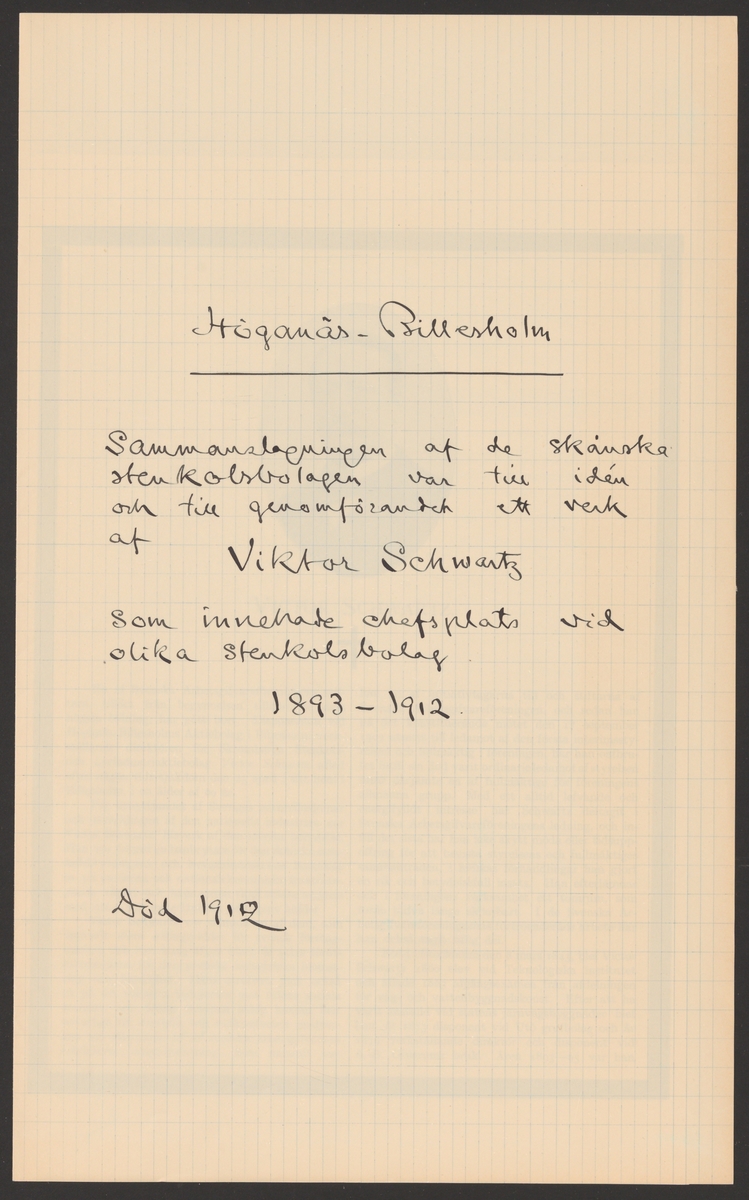 Höganäs - Billesholm
Sammanslagningen af de skånska
stenkolsbolagen var till idén
och till genomförandet ett verk
af
Viktor Schwartz
som innehade chefsplats vid
olika stenkolsbolag
1893 - 1912.
Död 1912